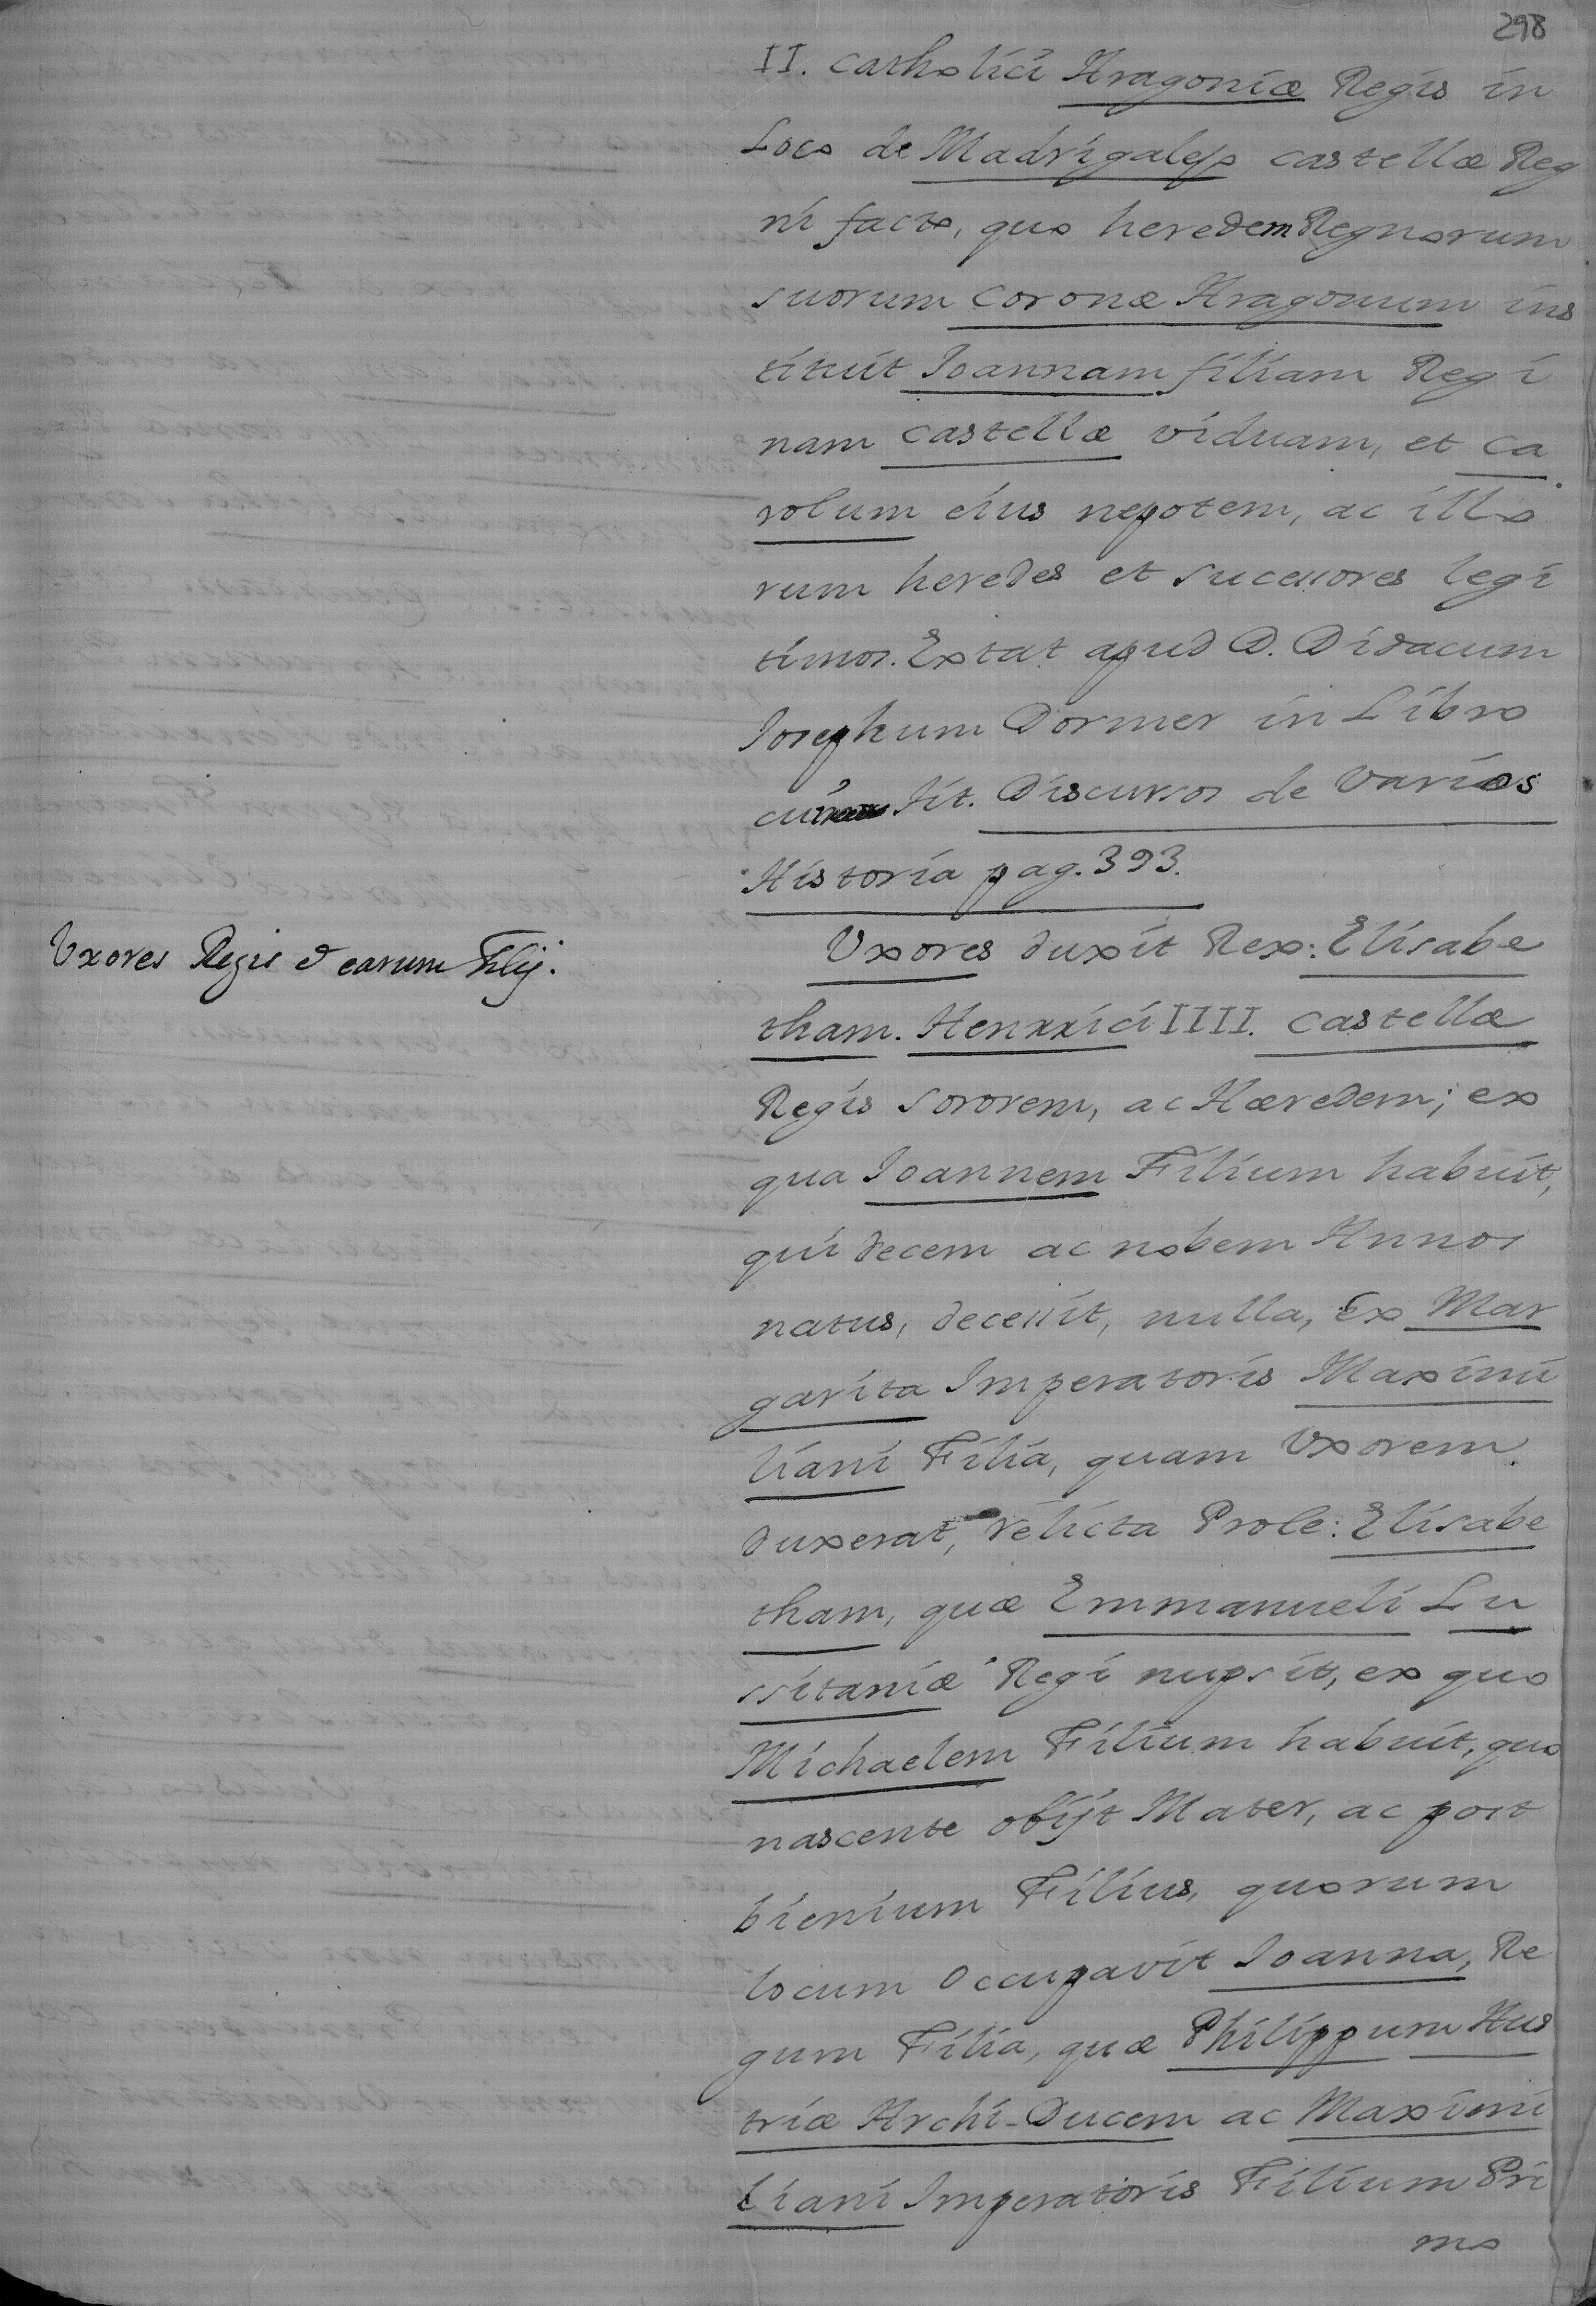 298
II. Catholici Aragoniæ Regis in
Loco de Madrigalejo Castellæ Reg
ni facto, quo heredem Regnorum
suorum Coronæ Aragonum ins
tituit Ioannam filiam Regi
nam Castellæ viduam, et Ca
rolum eius nepotem, ac illo
rum heredes et sucessores legi
timos. Extat apud D. Didacum
Iosephum Dormer in Libro
cui Tit. Discursos de Varios
Historia pag. 393.
Uxores Regis & earum Filij.
Uxores duxit Rex: Elisabe
tham. Henrrici IIII. Castellæ
Regis Sororem, ac Hæredem; ex
qua Ioannem Filium habuit,
qui decem ac nobem Annos
natus, decessit, nulla, Ex Mar
garita Imperatoris Maximi
liani Filia, quam Uxorem
duxerat, relicta Prole: Elisabe
tham, quæ Emmanueli Lu
ssitaniæ Regi nupsit, ex quo
Michaelem Filium habuit, quo
nascente obijt Mater, ac post
bienium Filius, quorum
locum Occupavit Ioanna, Re
gum Filia, quæ Philippum Aus
triæ Archi-Ducem ac Maximi
liani Imperatoris Filium Pri
mo